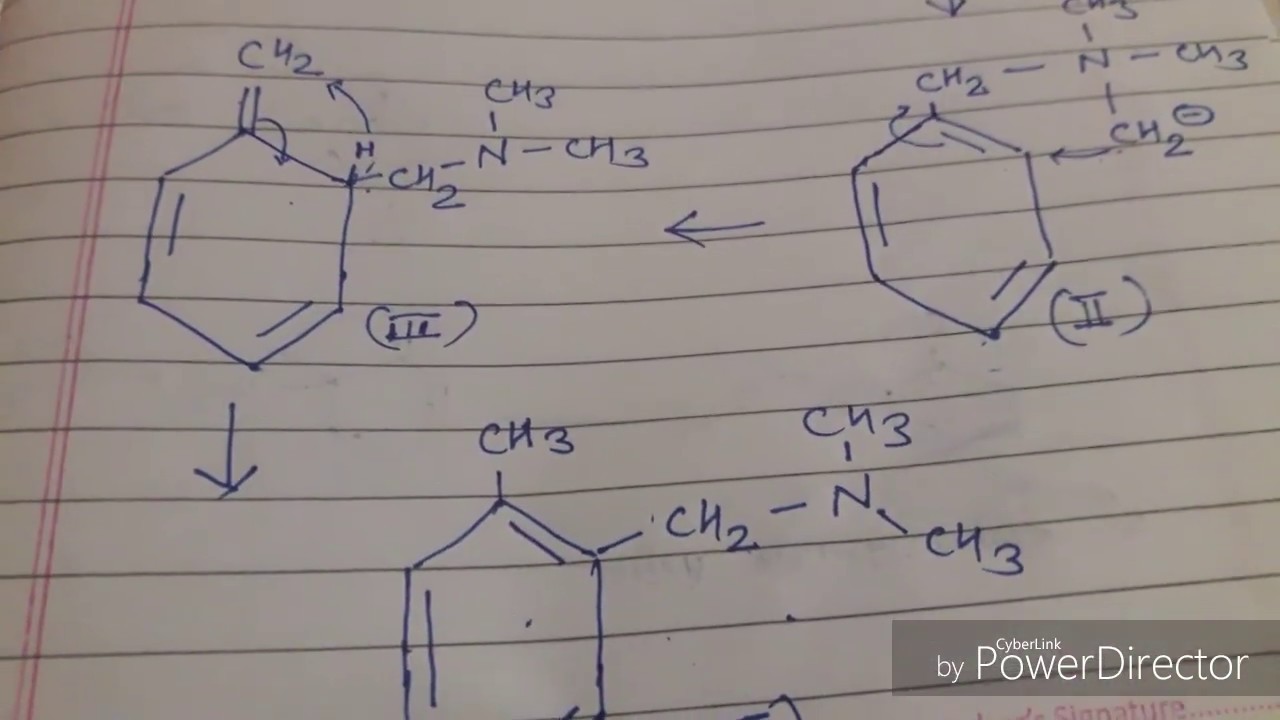 CH3
CH2 — N — CH3
CH2⊖
(II)
CH2
H
CH3
CH2 – N – CH3
(III)
CH3
CH3
CH2 – N
CH3
CyberLink
by PowerDirector
Signature